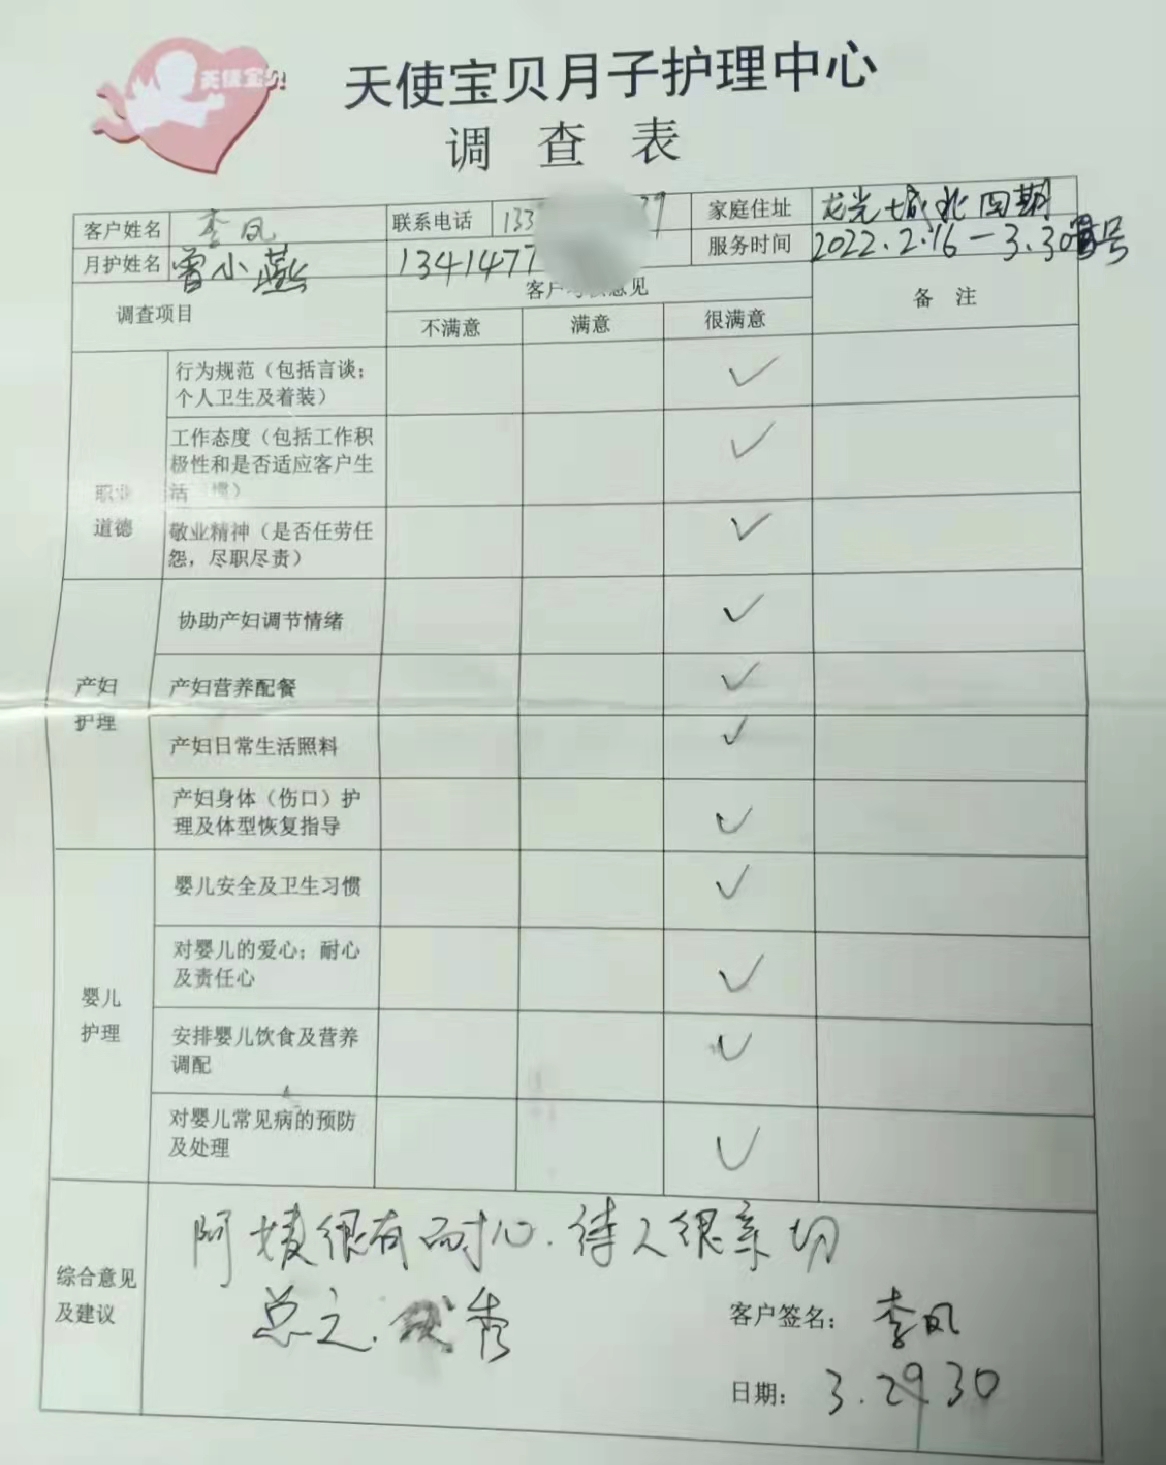 天使宝贝
天使宝贝月子护理中心
调查表
客户姓名 李凤 联系电话 133 39 家庭住址 龙光城北四期
月护姓名 曾小燕 1341477 服务时间 2022.2.16-3.30号
调查项目 客户 意见 备注
不满意 满意 很满意
职业
道德
行为规范（包括言谈；
个人卫生及着装） ✓
工作态度（包括工作积
极性和是否适应客户生
活 惯） ✓
敬业精神（是否任劳任
怨，尽职尽责） ✓
产妇
护理
协助产妇调节情绪 ✓
产妇营养配餐 ✓
产妇日常生活照料 ✓
产妇身体（伤口）护
理及体型恢复指导 ✓
婴儿
护理
婴儿安全及卫生习惯 ✓
对婴儿的爱心；耐心
及责任心 ✓
安排婴儿饮食及营养
调配 ✓
对婴儿常见病的预防
及处理 ✓
综合意见
及建议
阿姨很有耐心.待人很亲切
总之. 优秀
客户签名：李凤
日期：3.29 30